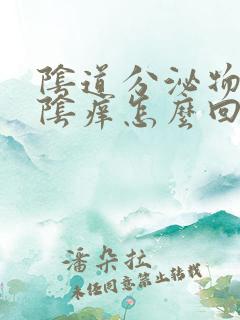 陰道分泌物
陰癢怎麼回
潘朵拉
未經同意禁止轉載